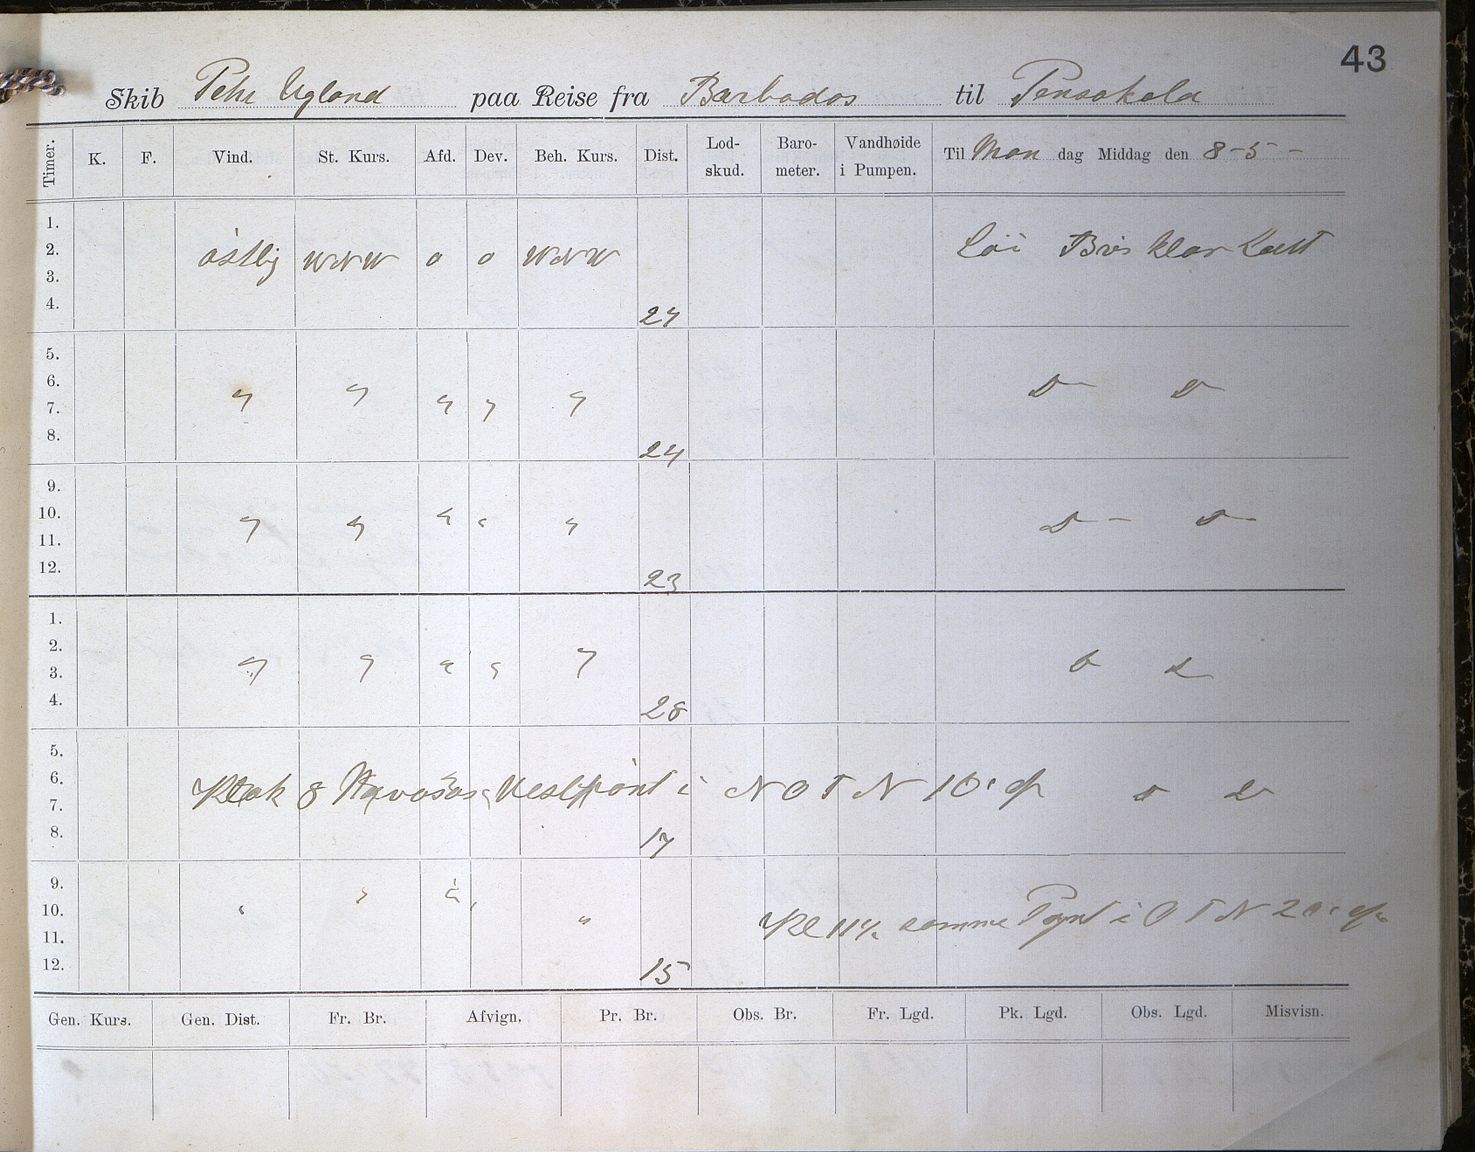 43
Skib Pehr Ugland paa Reise fra Barbados til Pensakola
Timer. K. F. Vind. St. Kurs. Afd. Dev. Beh. Kurs. Dist. Lod-skud. Baro-meter. Vandhøide i Pumpen. Til Man dag Middag den 8-5-
1.
2. östlig WNW o o WNW Löi Bris klar Luft
3.
4. 24
5.
6. " " " " " D D
7.
8. 24
9.
10. " " " " " D D
11.
12. 23
1.
2.
3. " " " " " D D
4. 28
5.
6. Klok 8 Navasas Vestpönt i NOTN 10' af D D
7.
8. 17
9.
10. " " " " " Kl 11½ samme Pynt i OTN 20' af
11.
12. 15
Gen. Kurs. Gen. Dist. Fr. Br. Afvign. Pr. Br. Obs. Br. Fr. Lgd. Pk. Lgd. Obs. Lgd. Misvisn.